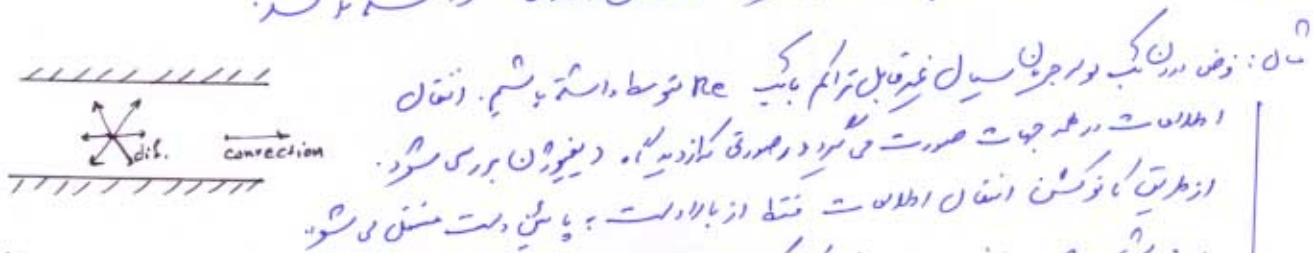 مثال: فرض درون یک لوله جریان سیال غیرقابل تراکم با یک Re متوسط داشته باشیم. انتقال
اطلاعات در همه جهات صورت می گیرد در صورتی که از دیدگاه دیفیوژن بررسی شود.
از طریق کانوکشن انتقال اطلاعات فقط از بالادست به پائین دست منتقل می شود.
dif.
convection